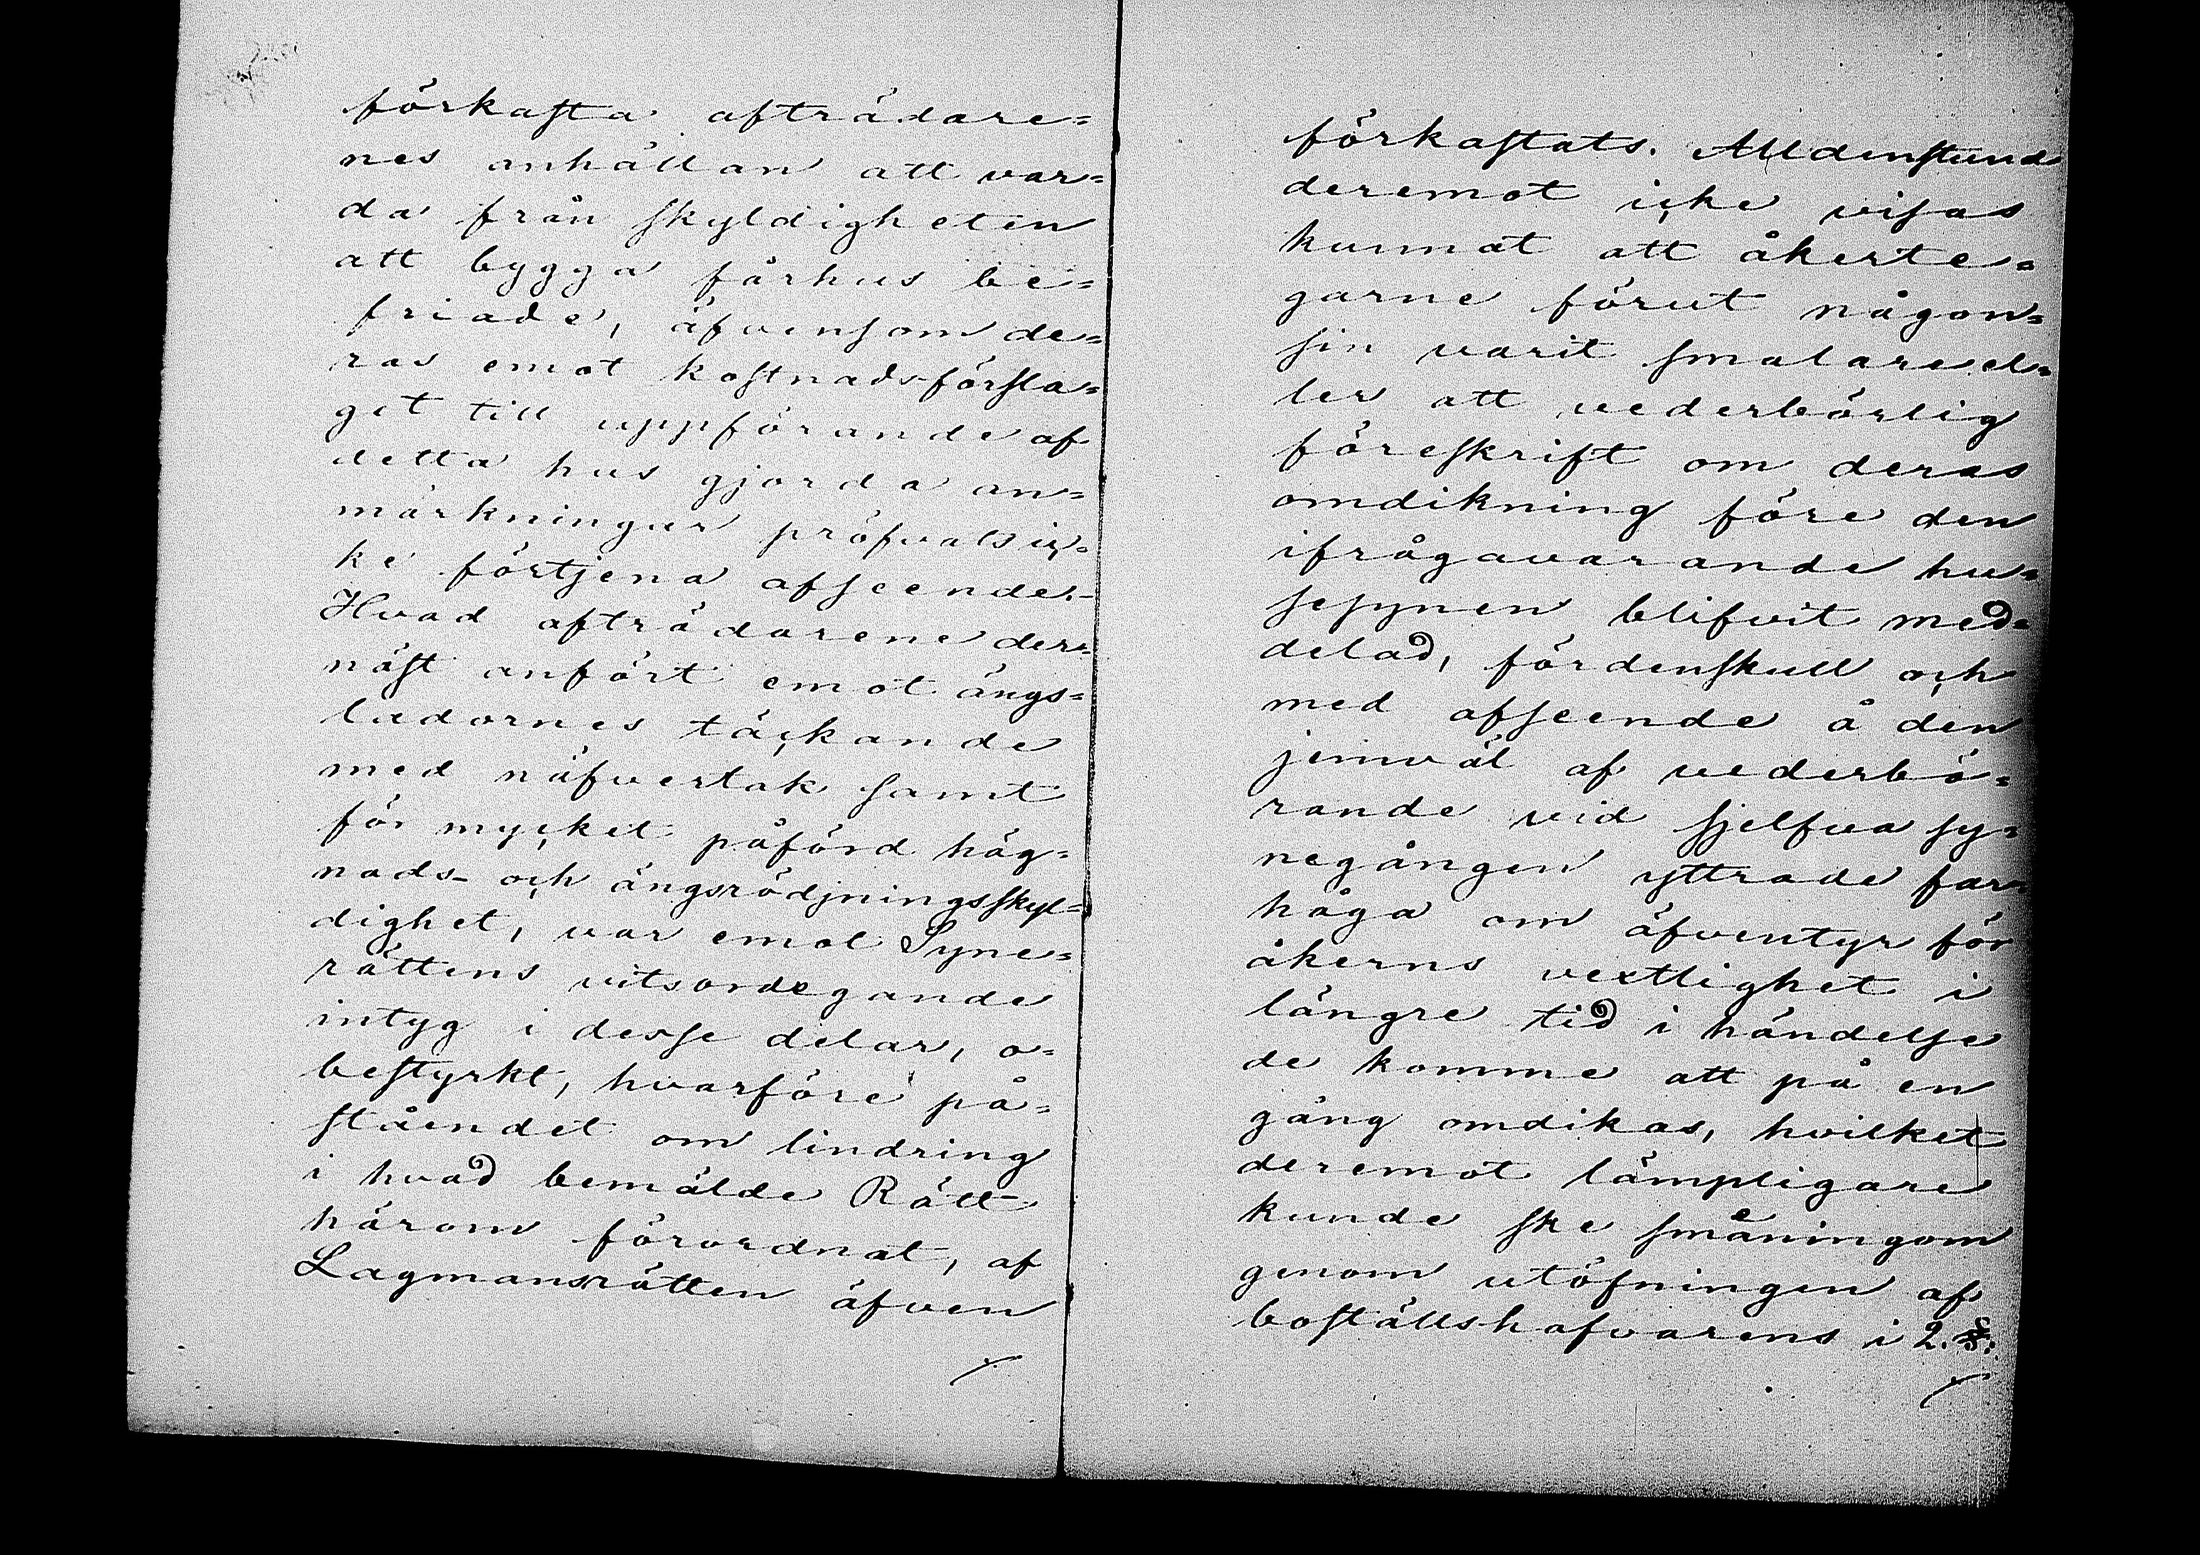 förkasta afträdare=
nes anhållan att var=
da från skyldigheten
att bygga fårhus be=
friade, äfvensom de=
ras emot kostnadsförsla=
get till uppförande af
detta hus gjorda an=
märkningar pröfvats ic=
ke förtjena afseende.-
Hvad afträdarene der=
näst anfört emot ängs=
ladornes täckande
med näfvertak samt
för mycket påförd häg=
nads- och ängsrödjningsskyl=
dighet, var emot Syne=
rättens vitsordegande
intyg i desse delar, o=
bestyrkt, hvarföre på=
ståendet om lindring
i hvad bemälde Rätt
härom förordnat, af
Lagmansrätten äfven
förkastats. Alldenstund
deremot icke visas
kunnat att åkerte=
garne förut någon=
sin varit smalare el=
ler att vederbörlig
föreskrift om deras
omdikning före den
ifrågavarande hu=
sesynen blifvit med=
delad, fördenskull och
med afseende å den
jemväl af vederbö=
rande vid sjelfva sy=
negången yttrade far=
håga om äfventyr för
åkerns vextlighet i
längre tid i händelse
de komme att på en
gång omdikas, hvilket
deremot lämpligare
kunde ske småningom
genom utöfningen af
boställshafvarens i 2. §.